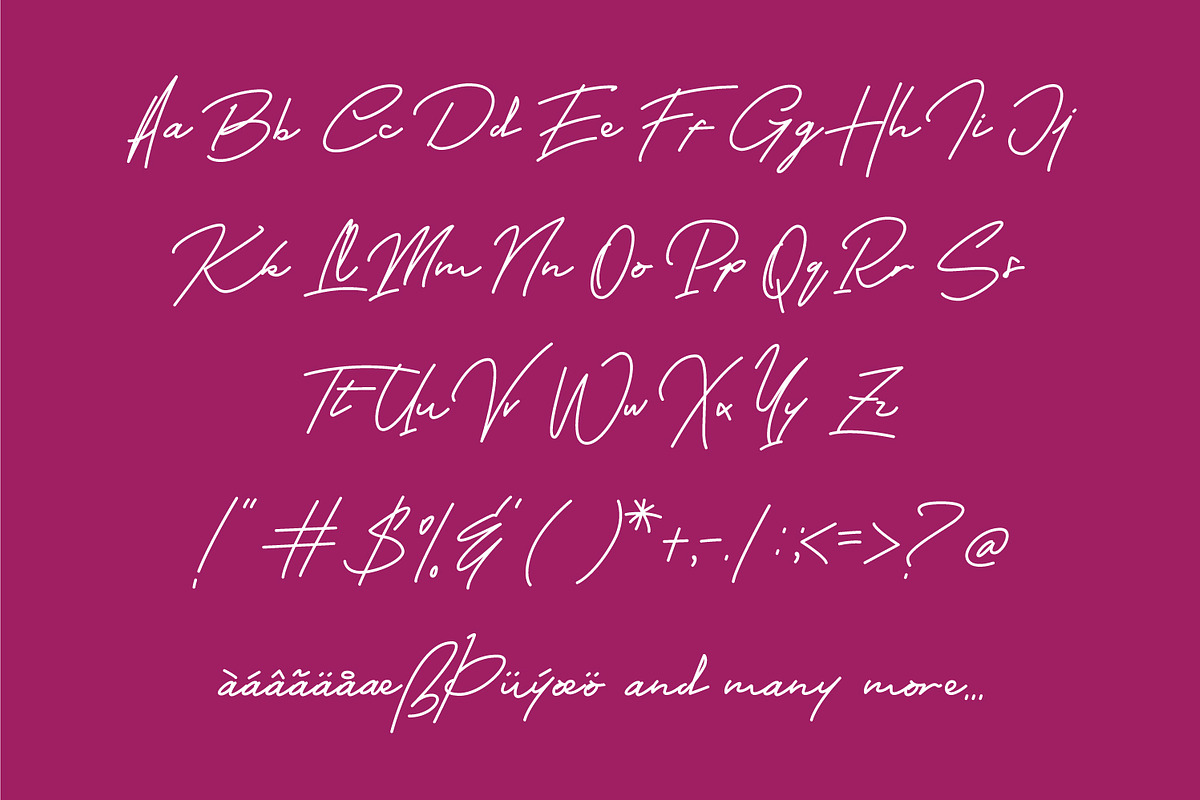 Aa Bb Cc Dd Ee Ff Gg Hh Ii Jj
Kk Ll Mm Nn Oo Pp Qq Rr Ss
Tt Uu Vv Ww Xx Yy Zz
!"#$%&'()*+,-./:;<=>?@
àáâãäåæßÞüýœö and many more...